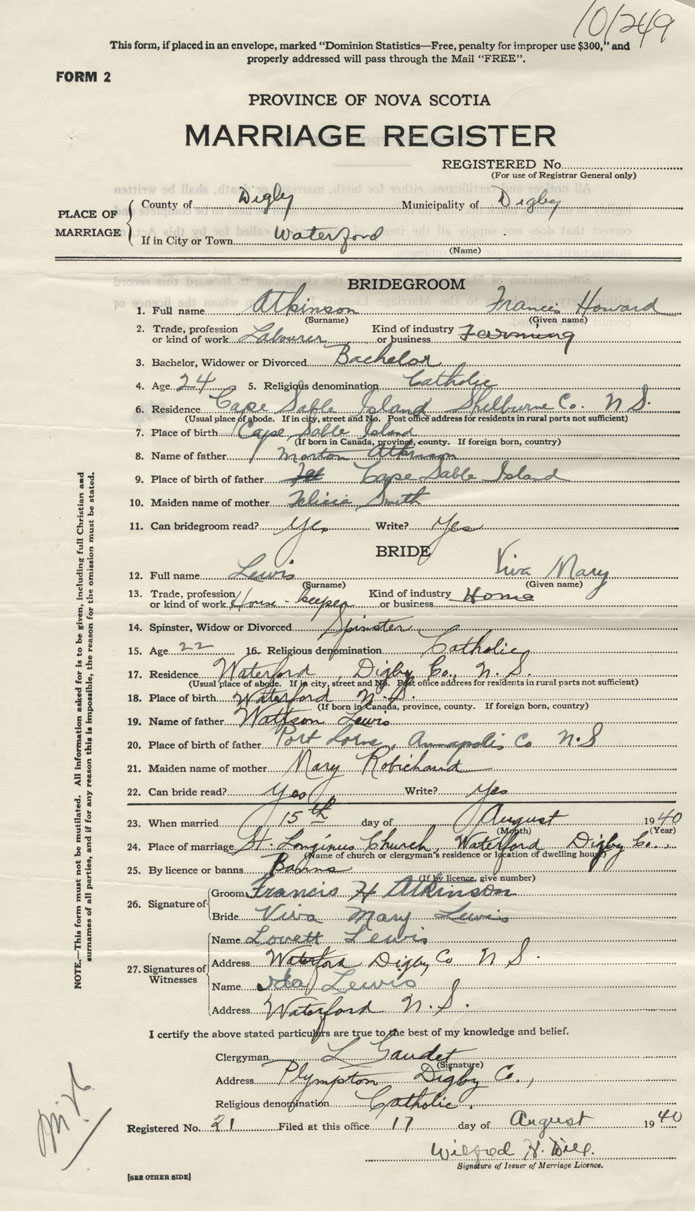 10/249
This form, if placed in an envelope, marked "Dominion Statistics—Free, penalty for improper use $300," and
properly addressed will pass through the Mail "FREE".
FORM 2
PROVINCE OF NOVA SCOTIA
MARRIAGE REGISTER
REGISTERED No.
(For use of Registrar General only)
PLACE OF MARRIAGE
County of Digby Municipality of Digby
If in City or Town Waterford
(Name)
BRIDEGROOM
1. Full name Atkinson Francis Howard
(Surname) (Given name)
2. Trade, profession or kind of work Labourer Kind of industry or business Farming
3. Bachelor, Widower or Divorced Bachelor
4. Age 24 5. Religious denomination Catholic
6. Residence Cape Sable Island Shelburne Co. N.S.
(Usual place of abode. If in city, street and No. Post office address for residents in rural parts not sufficient)
7. Place of birth Cape Sable Island
(If born in Canada, province, county. If foreign born, country)
8. Name of father Morton Atkinson
9. Place of birth of father Cape Sable Island
10. Maiden name of mother Felicia Smith
11. Can bridegroom read? Yes Write? Yes
BRIDE
12. Full name Lewis Viva Mary
(Surname) (Given name)
13. Trade, profession or kind of work House-keeper Kind of industry or business Home
14. Spinster, Widow or Divorced Spinster
15. Age 22 16. Religious denomination Catholic
17. Residence Waterford, Digby Co., N.S.
(Usual place of abode. If in city, street and No. Post office address for residents in rural parts not sufficient)
18. Place of birth Waterford N.S.
(If born in Canada, province, county. If foreign born, country)
19. Name of father Wattson Lewis
20. Place of birth of father Port Lorne, Annapolis Co N.S
21. Maiden name of mother Mary Robichaud
22. Can bride read? Yes Write? Yes
23. When married 15th day of August 1940
(Month) (Year)
24. Place of marriage St. Longinus Church, Waterford Digby Co.,
(Name of church or clergyman's residence or location of dwelling house)
25. By licence or banns Banns
(If by licence, give number)
26. Signature of
Groom Francis H Atkinson
Bride Viva Mary Lewis
27. Signatures of Witnesses
Name Lovett Lewis
Address Waterford Digby Co N.S.
Name Ida Lewis
Address Waterford N.S.
I certify the above stated particulars are true to the best of my knowledge and belief.
Clergyman L Gaudet
(Signature)
Address Plympton Digby Co.,
Religious denomination Catholic.
Registered No. 21 Filed at this office 17 day of August 1940
Wilfred H.
Signature of Issuer of Marriage Licence.
[SEE OTHER SIDE]
NOTE.—This form must not be mutilated. All information asked for is to be given, including full Christian and
surnames of all parties, and if for any reason this is impossible, the reason for the omission must be stated.